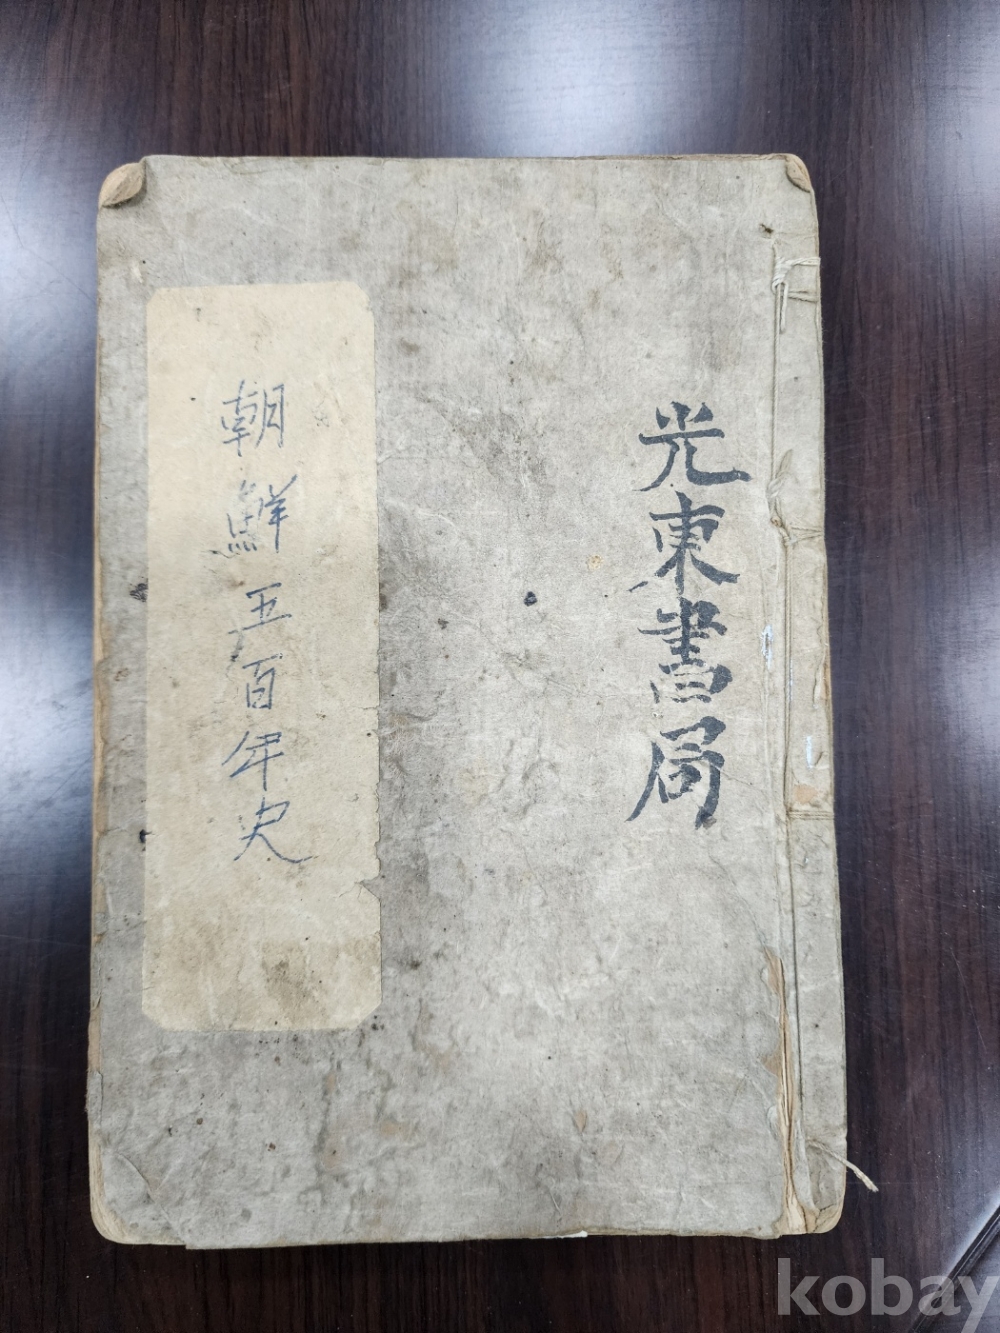 光東書局
朝鮮五百年史
kobay